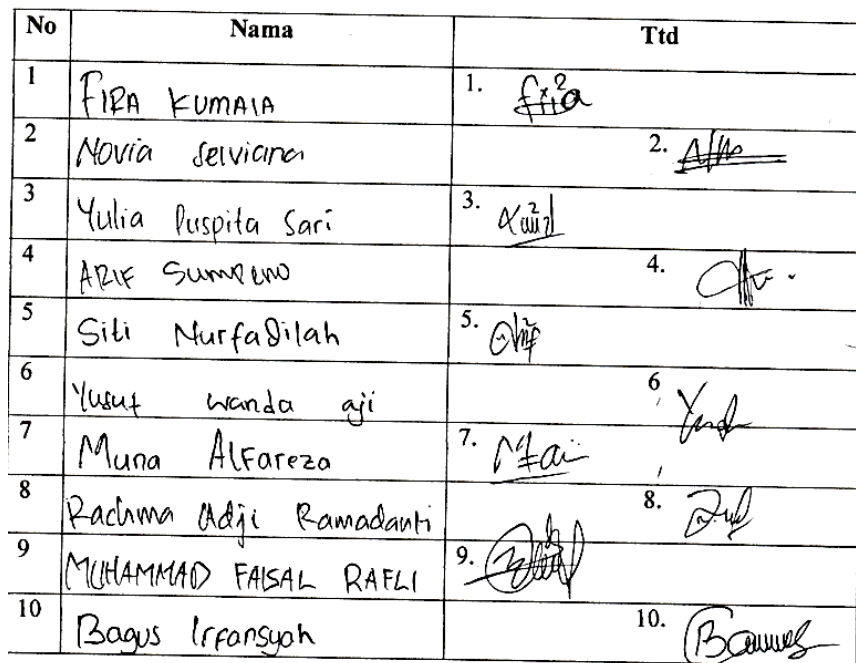 No Nama Ttd
1 FIRA KUMALA 1.
2 Novia Selviana 2.
3 Yulia Puspita Sari 3.
4 ARIF 4.
5 Siti Nurfadilah 5.
6 Yusuf wanda aji 6
7 Muna Alfareza 7.
8 Rachma Adji Ramadanti 8.
9 MUHAMMAD FAISAL RAFLI 9.
10 Bagus Irfansyah 10.